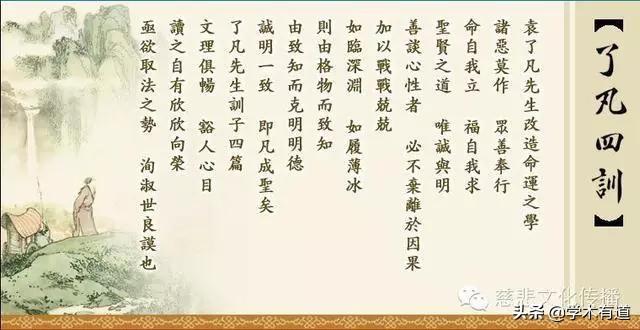 【了凡四訓】
袁了凡先生改造命運之學
諸惡莫作 眾善奉行
命自我立 福自我求
聖賢之道 唯誠與明
善談心性者 必不棄離於因果
加以戰戰兢兢
如臨深淵 如履薄冰
則由格物而致知
由致知而克明明德
誠明一致 即凡成聖矣
了凡先生訓子四篇
文理俱暢 豁人心目
讀之自有欣欣向榮
亟欲取法之勢 洵淑世良謨也
慈悲文化传播
头条 @学术有道